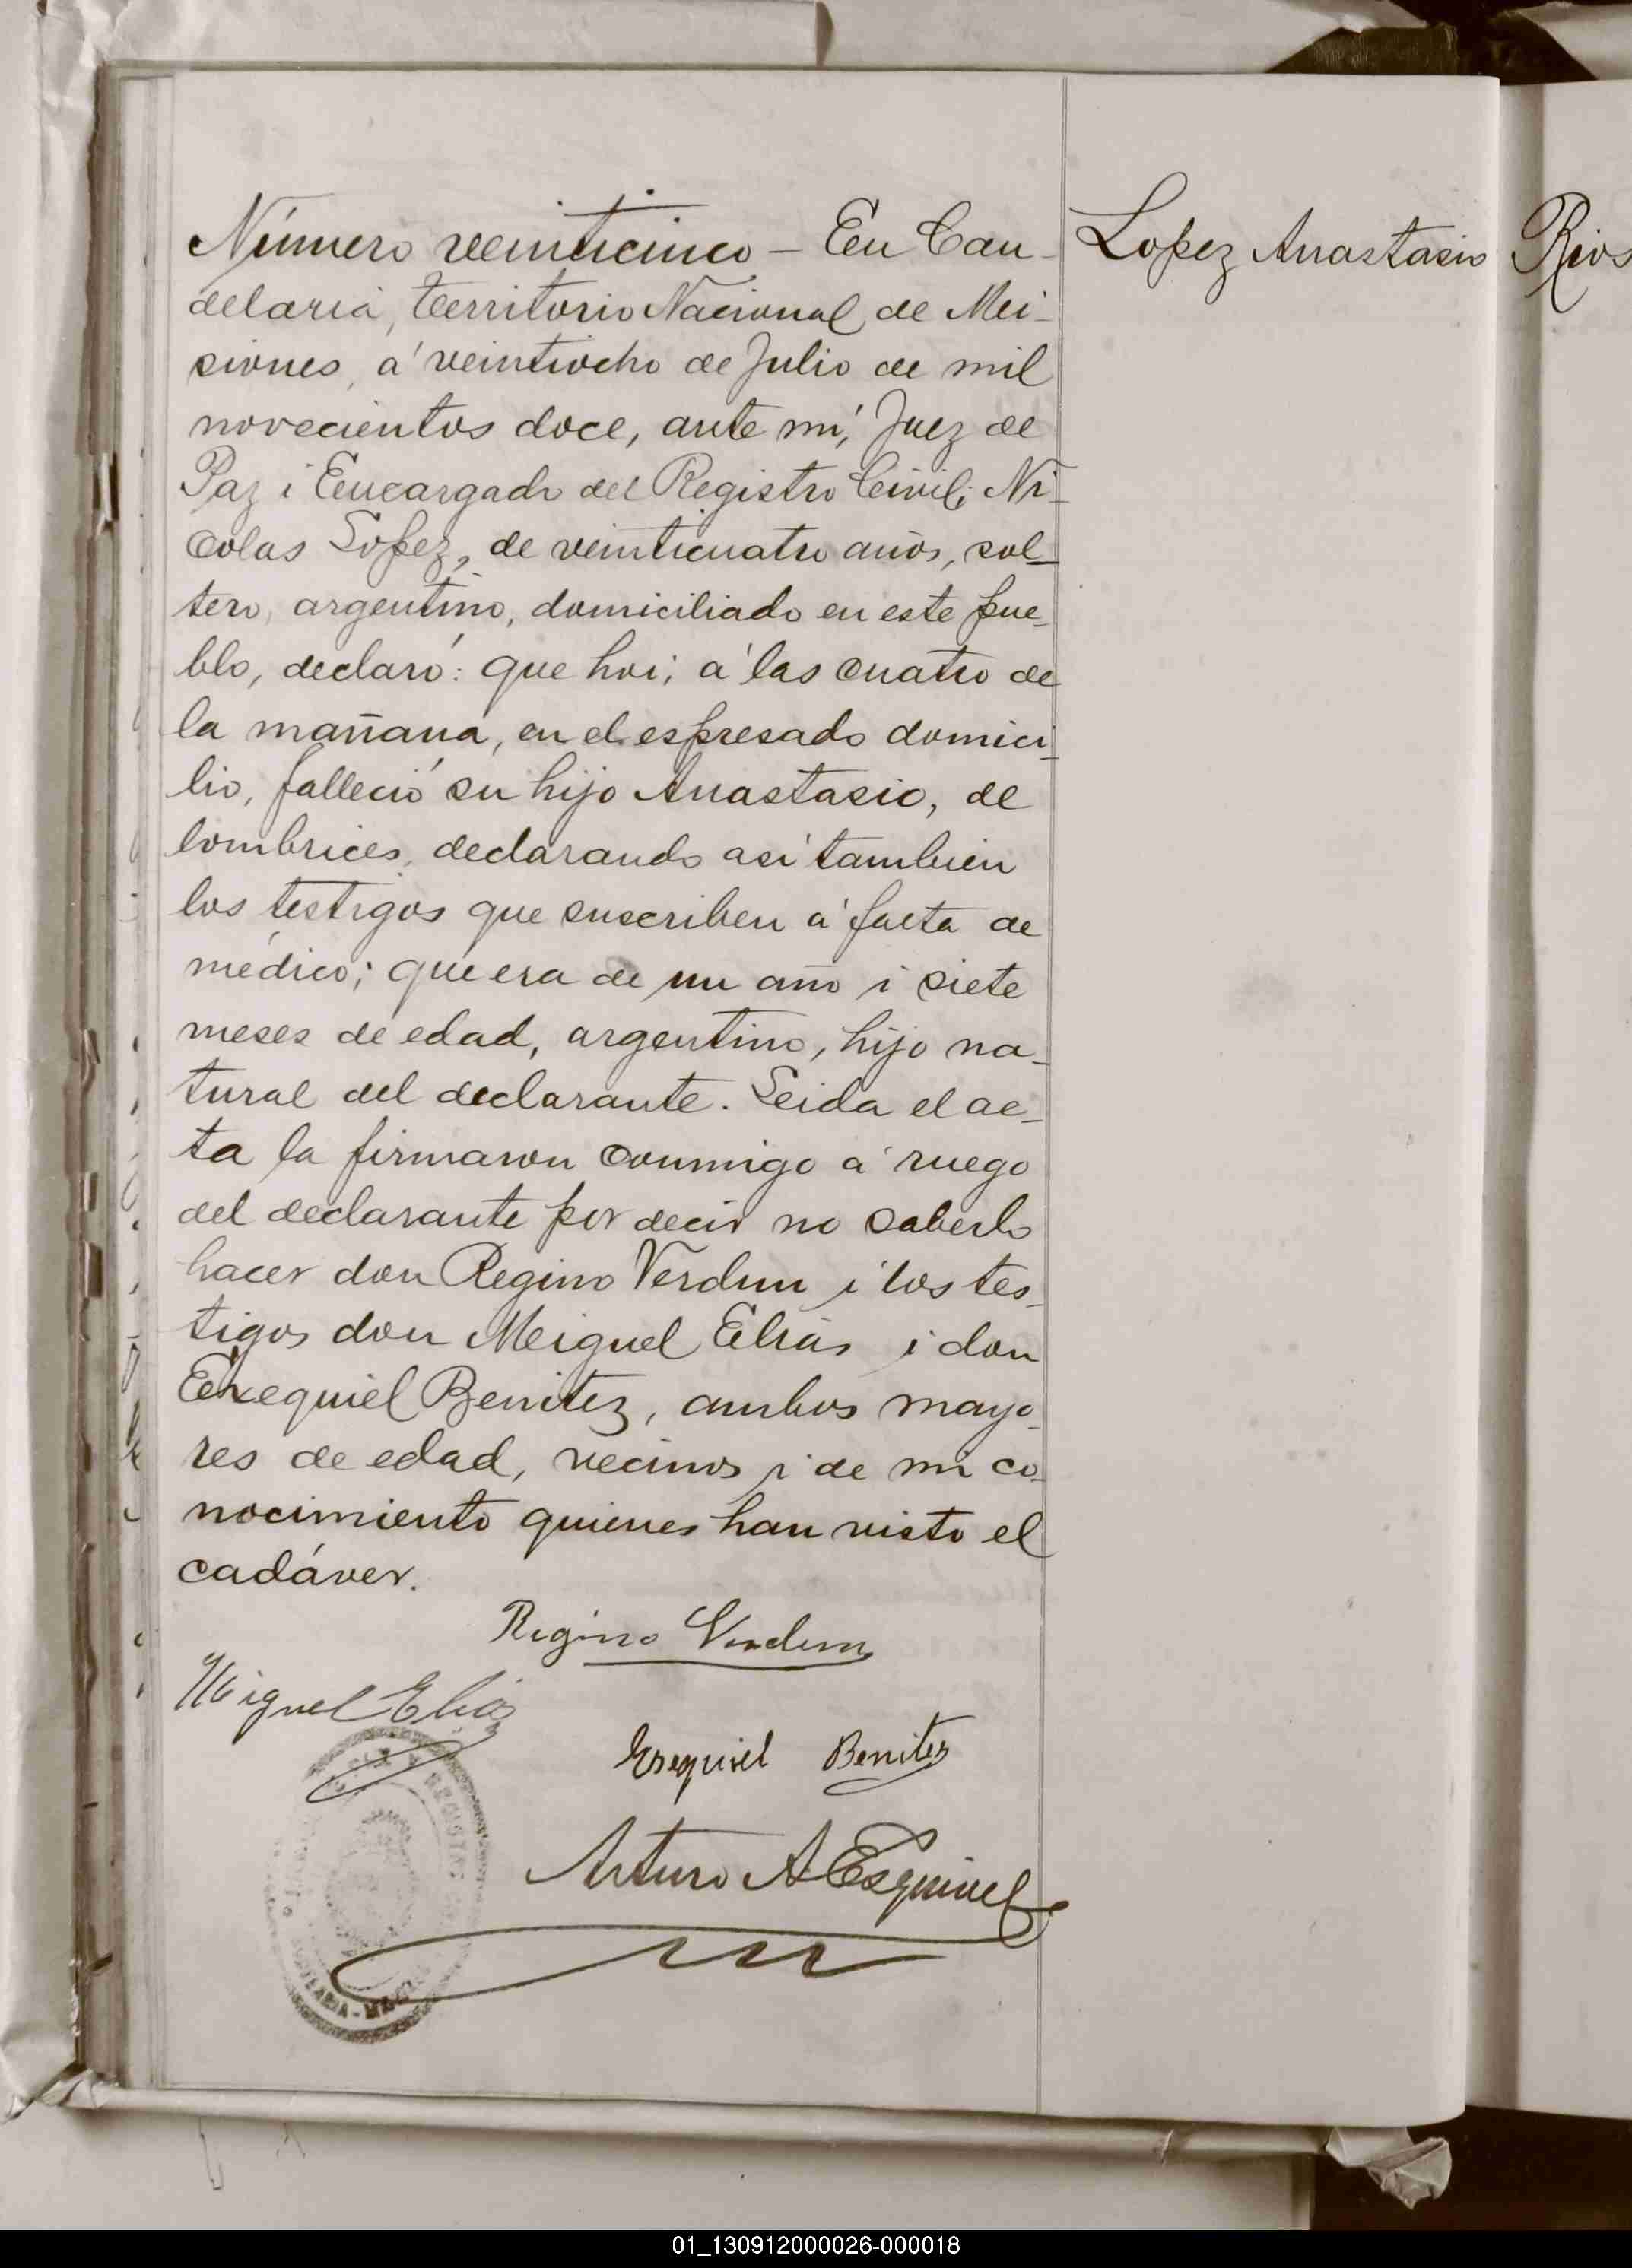 Número veinticinco – En Can-
Lopez Anastasio
Rios
delaria, territorio Nacional de Mi-
siones, á veintiocho de Julio de mil
novecientos doce, ante mí, Juez de
Paz i Encargado del Registro Civil; Ni-
colas Lopez, de veinticuatro años, sol-
tero, argentino, domiciliado en este pue-
blo, declaró: que hoi, á las cuatro de
la mañana, en el espresado domici-
lio, falleció su hijo Anastasio, de
lombrices, declarando así tambien
los testigos que suscriben á falta de
médico; que era de un año i siete
meses de edad, argentino, hijo na-
tural del declarante. Leida el ac-
ta la firmaron conmigo á ruego
del declarante por decir no saberlo
hacer don Regino Verdun i los tes-
tigos don Miguel Elias i don
Exequiel Benitez, ambos mayo-
res de edad, vecinos i de mi co-
nocimiento quienes han visto el
cadáver.
Regino Verdun
Miguel Elias
Esequiel Benitez
Arturo A Esquivel
REGISTRO
01_130912000026-000018